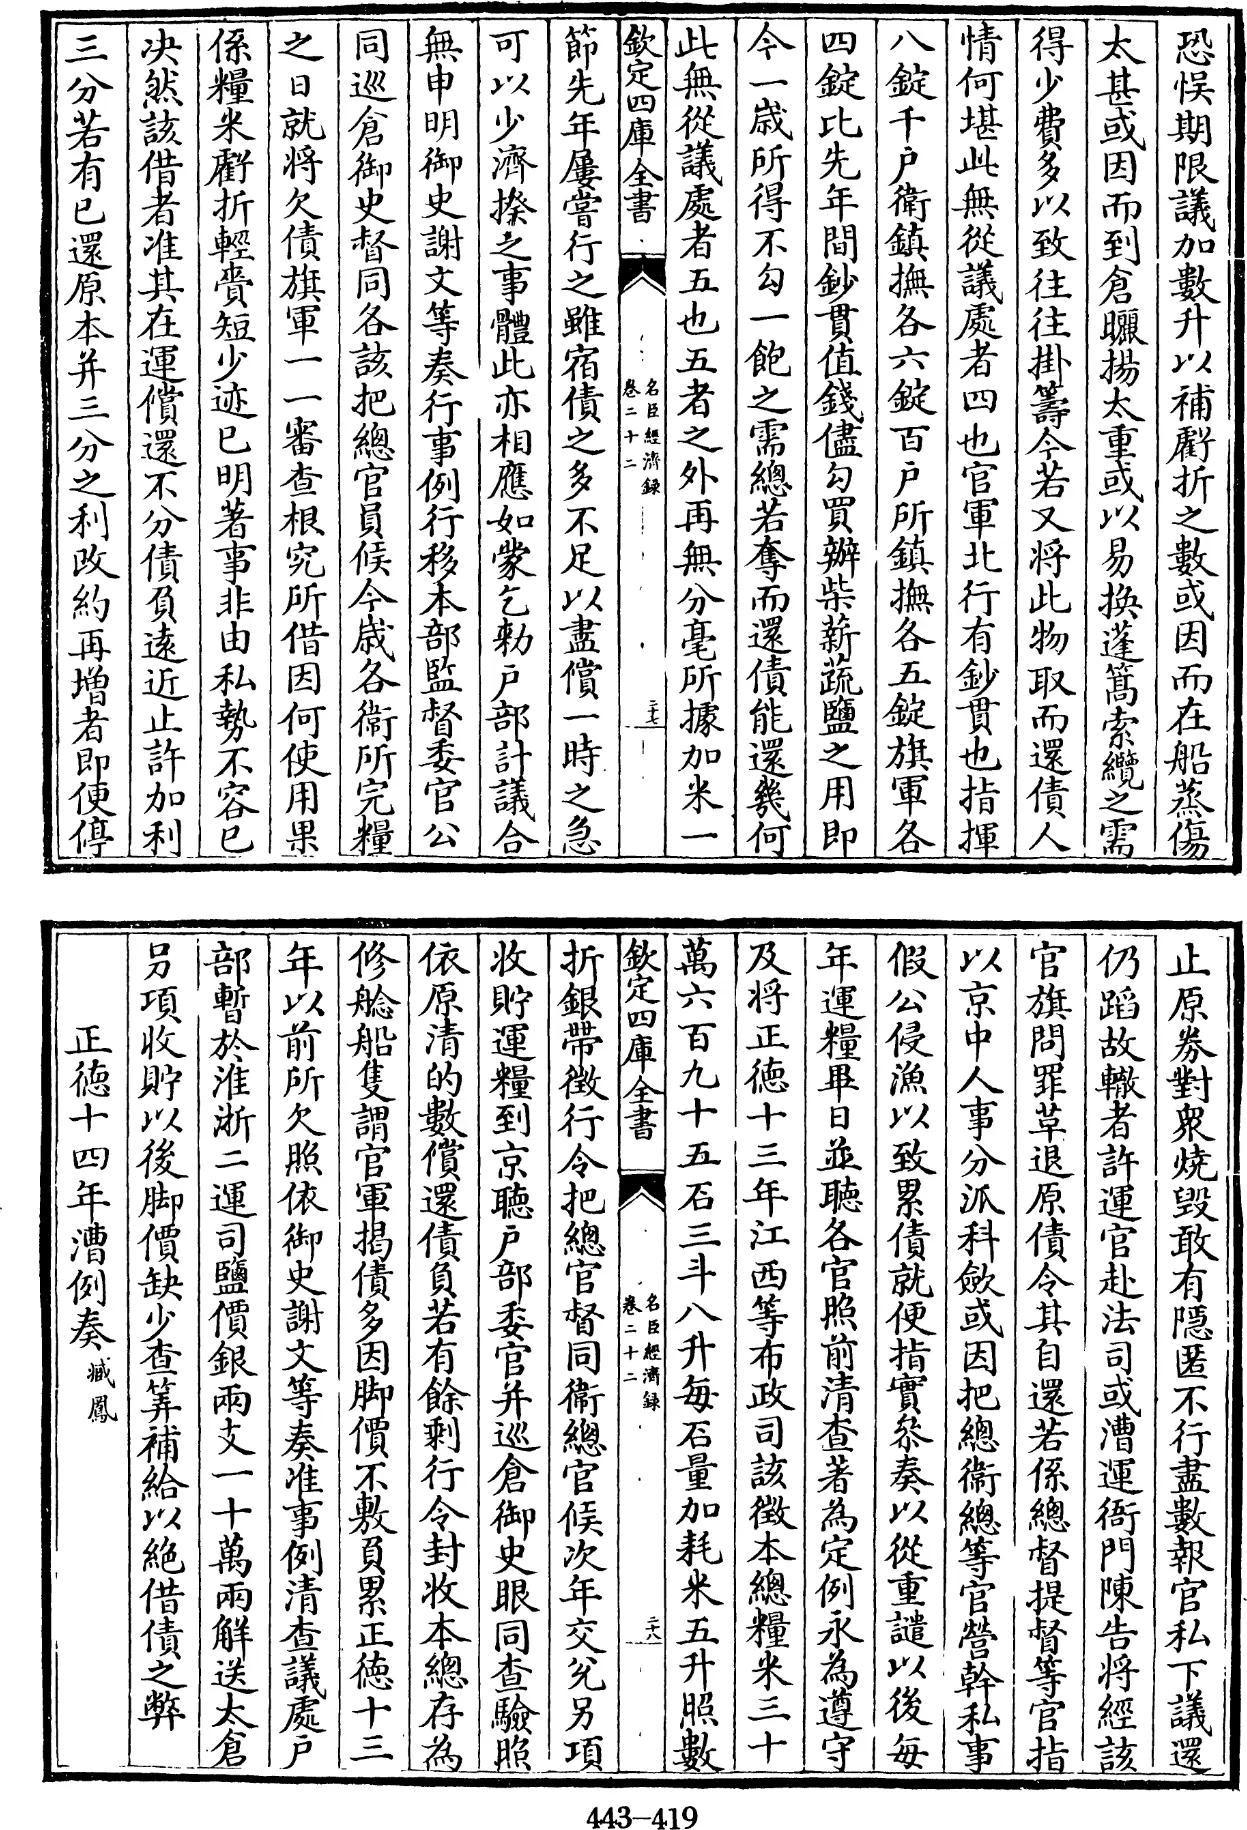 恐悮期限議加數升以補虧折之數或因而在船蒸傷
太甚或因而到倉曬揚太重或以易換蓬篙索纜之需
得少費多以致往往掛籌今若又将此物取而還債人
情何堪此無從議處者四也官軍北行有鈔貫也指揮
八錠千戶衛鎮撫各六錠百戶所鎮撫各五錠旗軍各
四錠比先年間鈔貫值錢儘勾買辦柴薪蔬鹽之用即
今一歲所得不勾一飽之需總若奪而還債能還幾何
此無從議處者五也五者之外再無分毫所據加米一
欽定四庫全書
名臣經濟錄
卷二十二
二十七
節先年屢嘗行之雖宿債之多不足以盡償一時之急
可以少濟揆之事體此亦相應如蒙乞勅戶部計議合
無申明御史謝文等奏行事例行移本部監督委官公
同巡倉御史督同各該把總官員候今歲各衛所完糧
之日就將欠債旗軍一一審查根究所借因何使用果
係糧米虧折輕賫短少迹已明著事非由私勢不容已
决然該借者准其在運償還不分債負遠近止許加利
三分若有已還原本并三分之利改約再增者即便停
止原券對衆燒毀敢有隱匿不行盡數報官私下議還
仍蹈故轍者許運官赴法司或漕運衙門陳告將經該
官旗問罪革退原債令其自還若係總督提督等官指
以京中人事分派科斂或因把總衛總等官營幹私事
假公侵漁以致累債就便指實叅奏以從重譴以後每
年運糧畢日並聽各官照前清查著為定例永為遵守
及将正德十三年江西等布政司該徵本總糧米三十
萬六百九十五石三斗八升每石量加耗米五升照數
欽定四庫全書
名臣經濟錄
卷二十二
二十八
折銀帶徵行令把總官督同衛總官候次年交兌另項
收貯運糧到京聽戶部委官并巡倉御史眼同查驗照
依原清的數償還債負若有餘剩行令封收本總存為
修艌船隻謂官軍揭債多因脚價不敷負累正德十三
年以前所欠照依御史謝文等奏准事例清查議處戶
部暫於淮浙二運司鹽價銀兩支一十萬兩解送太倉
另項收貯以後脚價缺少查筭補給以絕借債之弊
正德十四年漕例奏 臧鳳
443-419